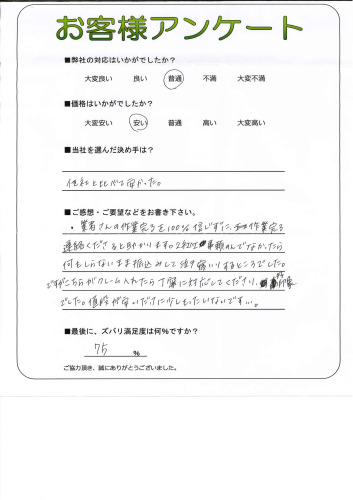 お客様アンケート
■弊社の対応はいかがでしたか？
大変良い 良い 普通 不満 大変不満
■価格はいかがでしたか？
大変安い 安い 普通 高い 大変高い
■当社を選んだ決め手は？
他社と比べて安かった。
■ご感想・ご要望などをお書き下さい。
・業者さんの作業完了を100%信じずに、作業完了
連絡くださると助かります。2社に 頼んでなかったら
何もしらないまま振込みして後で するところでした。
ですがこちらがクレーム入れたら丁寧に対応してくださり、 好印象
でした。値段が安いだけに少しもったいないです…。
■最後に、ズバリ満足度は何%ですか？
75 %
ご協力頂き、誠にありがとうございました。